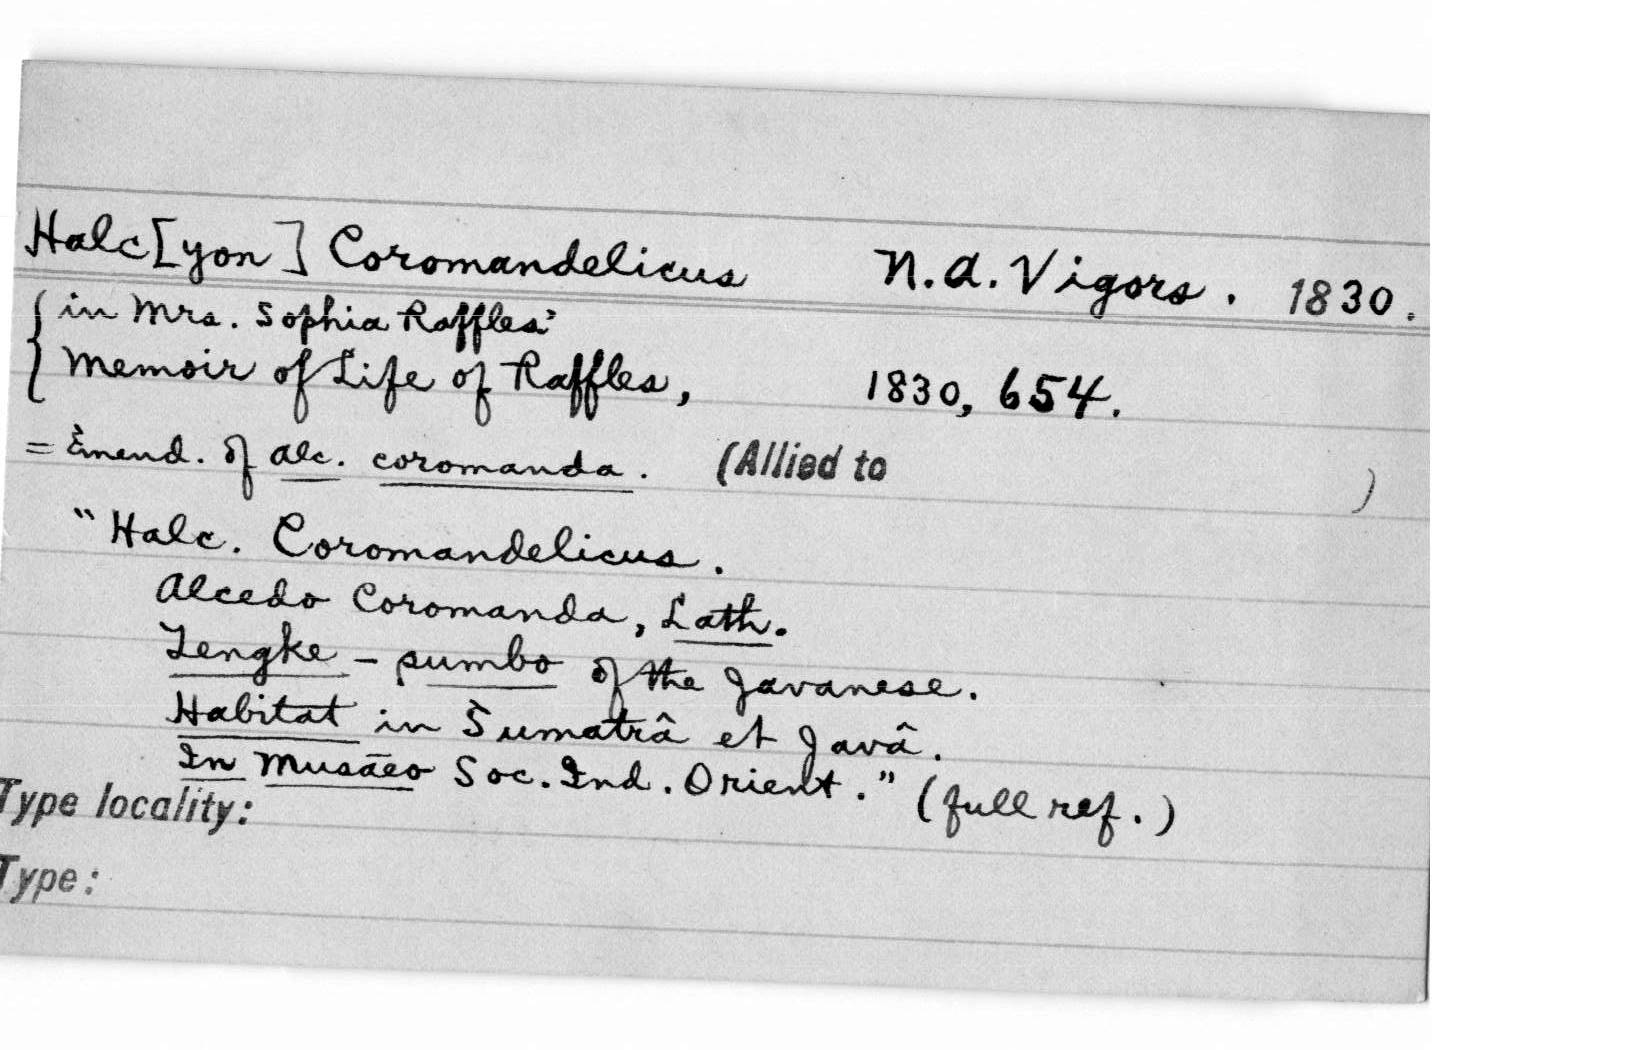 Halc[yon] Coromandelicus N.A. Vigors. 1830.
{in Mrs. Sophia Raffles'
Memoir of Life of Raffles, 1830, 654.
= Emend. of Alc. coromanda. (Allied to )
"Halc. Coromandelicus.
Alcedo Coromanda, Lath.
Tengke - pumbo of the Javanese.
Habitat in Sumatrâ et Javâ.
In Musaeo Soc. Ind. Orient." (full ref.)
Type locality:
Type: